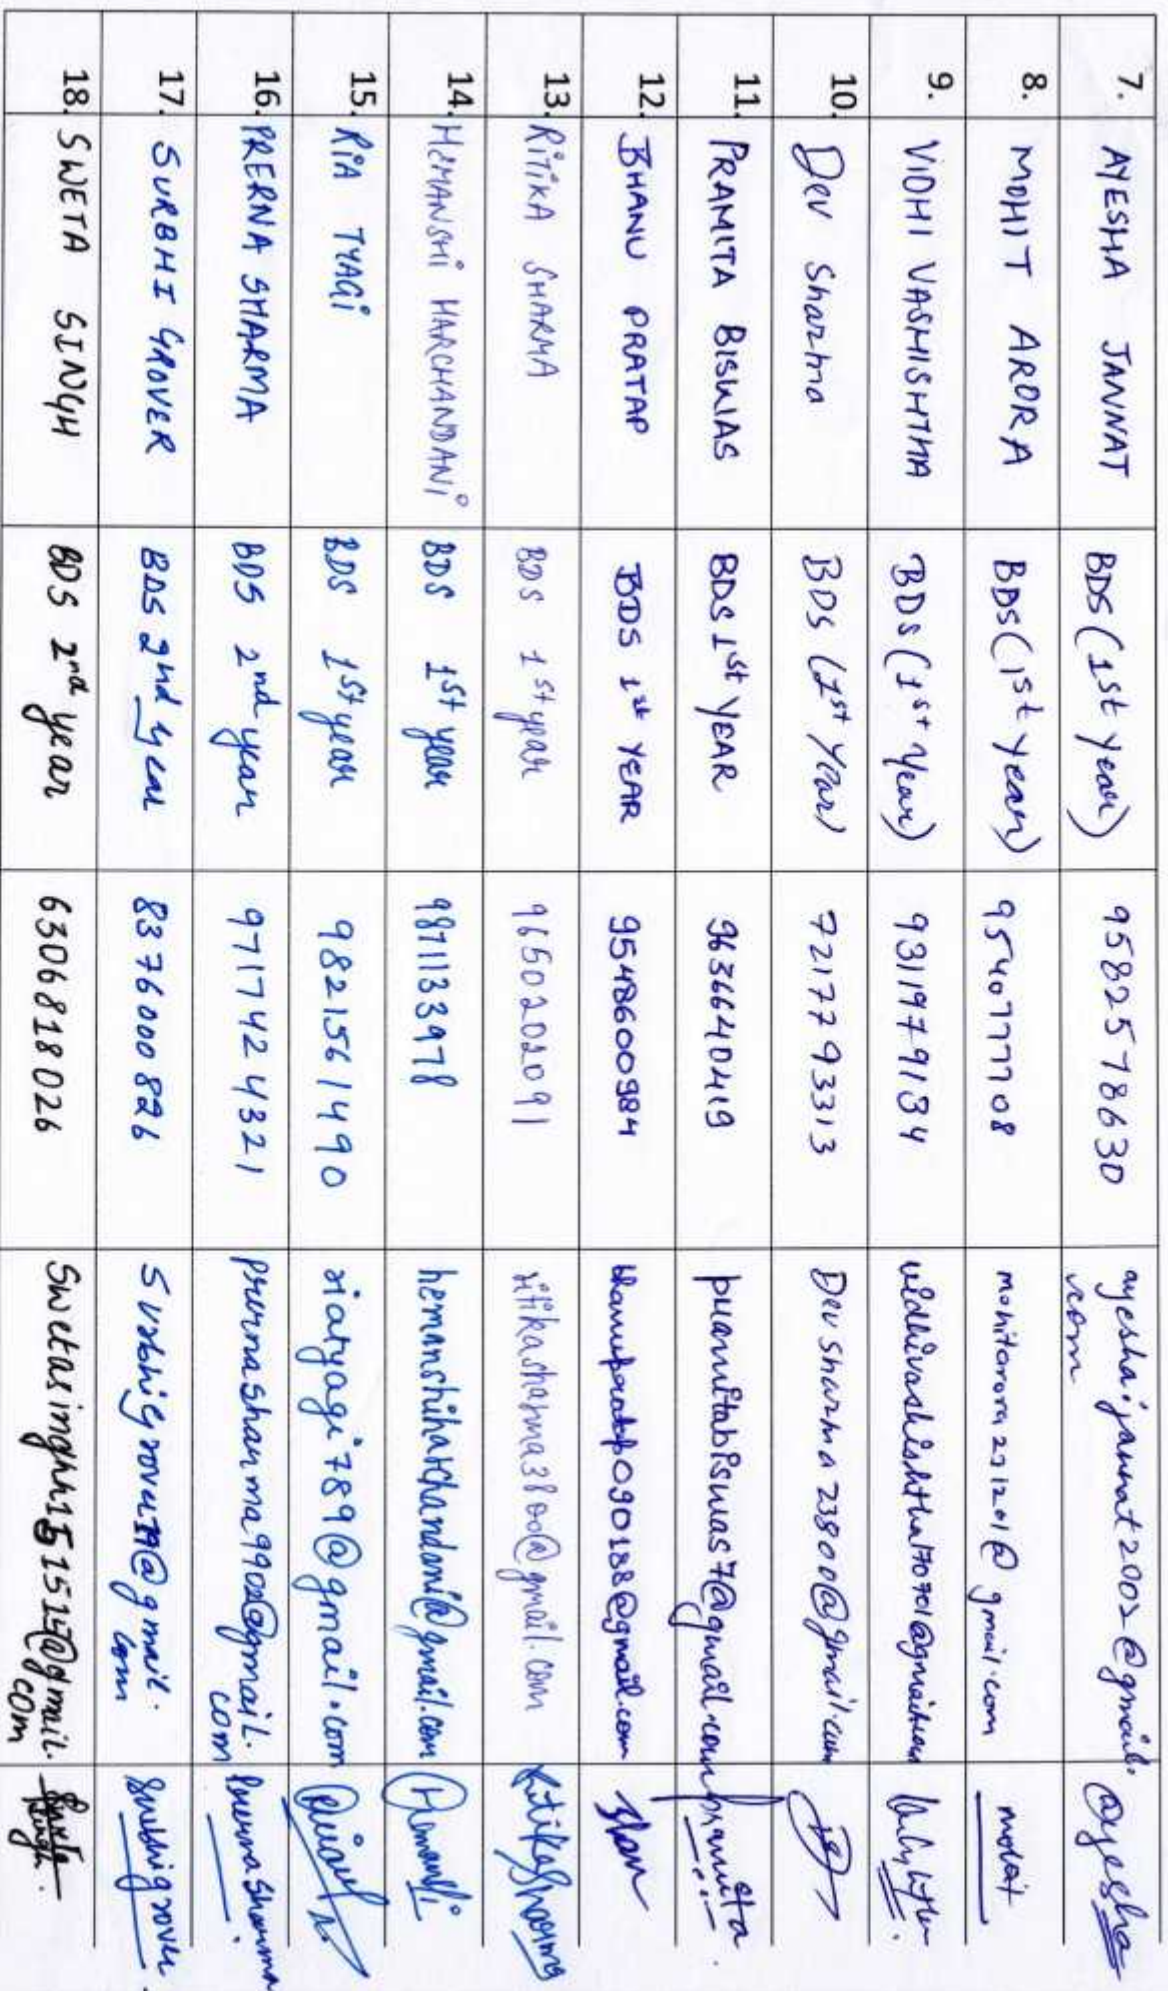 7. AYESHA JANNAT BDS (1st year) 9582578630 ayesha.jannat2002@gmail. Ayesha
com
8. MOHIT ARORA BDS (1st year) 9540777708 mohitarora271201@gmail.com mohit
9. VIDHI VASHISHTHA BDS (1st year) 9311979134 vidhivashishtha170701@gmail.com
10. Dev Sharma BDS (1st year) 7217793313 Devsharma23800@gmail.com
11. PRAMITA BISWAS BDS 1st YEAR 9636640419 pramitabiswas7@gmail.com pramita
12. BHANU PRATAP BDS 1st YEAR 9548600984 bhanupratap090188@gmail.com Bhanu
13. RiTiKA SHARMA BDS 1st year 9650202091 ritikasharma3800@gmail.com RitikaSharma
14. HEMANSHi HARCHANDANi BDS 1st year 9871133978 hemanshiharchandani@gmail.com Hemanshi
15. RiA TYAGi BDS 1st year 9821561490 riatyagi789@gmail.com
16. PRERNA SHARMA BDS 2nd year 9717424321 prernasharma9902@gmail. Prerna Sharma
com
17. SURBHI GROVER BDS 2nd year 8376000826 Surbhigrover79@gmail. Surbhigrover
com
18. SWETA SINGH BDS 2nd year 6306818026 Swetasinghh151515@gmail. Sweta
com Singh